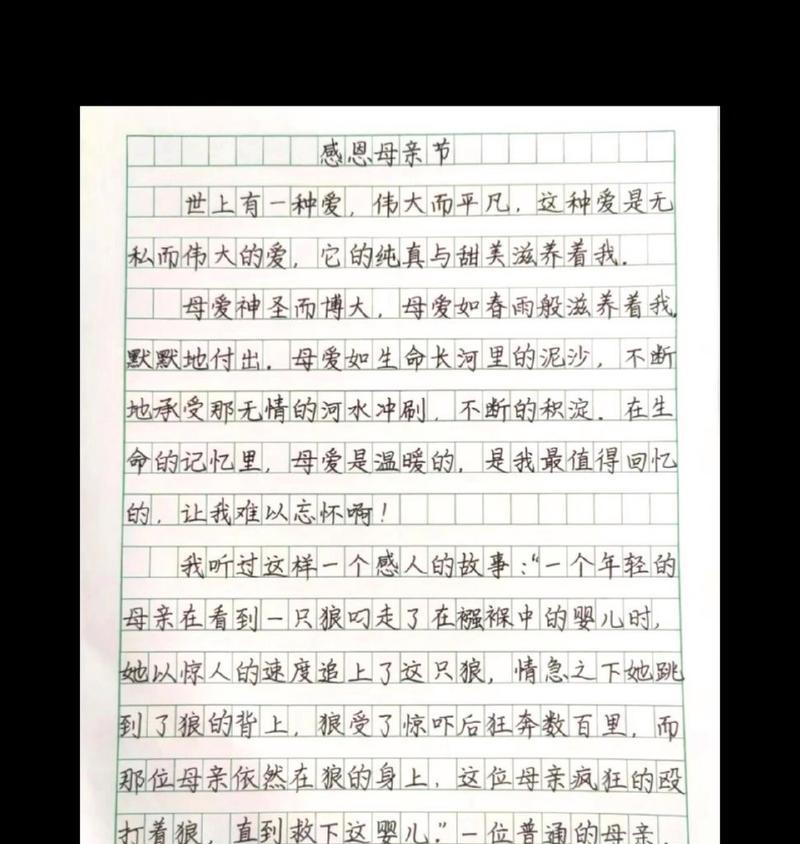 感恩母亲节
世上有一种爱，伟大而平凡，这种爱是无
私而伟大的爱，它的纯真与甜美滋养着我．
母爱神圣而博大，母爱如春雨般滋养着我，
默默地付出．母爱如生命长河里的泥沙，不断
地承受那无情的河水冲刷，不断的积淀．在生
命的记忆里，母爱是温暖的，是我最值得回忆
的，让我难以忘怀啊！
我听过这样一个感人的故事：“一个年轻的
母亲在看到一只狼叼走了在襁褓中的婴儿时，
她以惊人的速度追上了这只狼，情急之下她跳
到了狼的背上，狼受了惊吓后狂奔数百里，而
那位母亲依然在狼的身上，这位母亲疯狂的殴
打着狼，直到救下这婴儿．”一位普通的母亲，